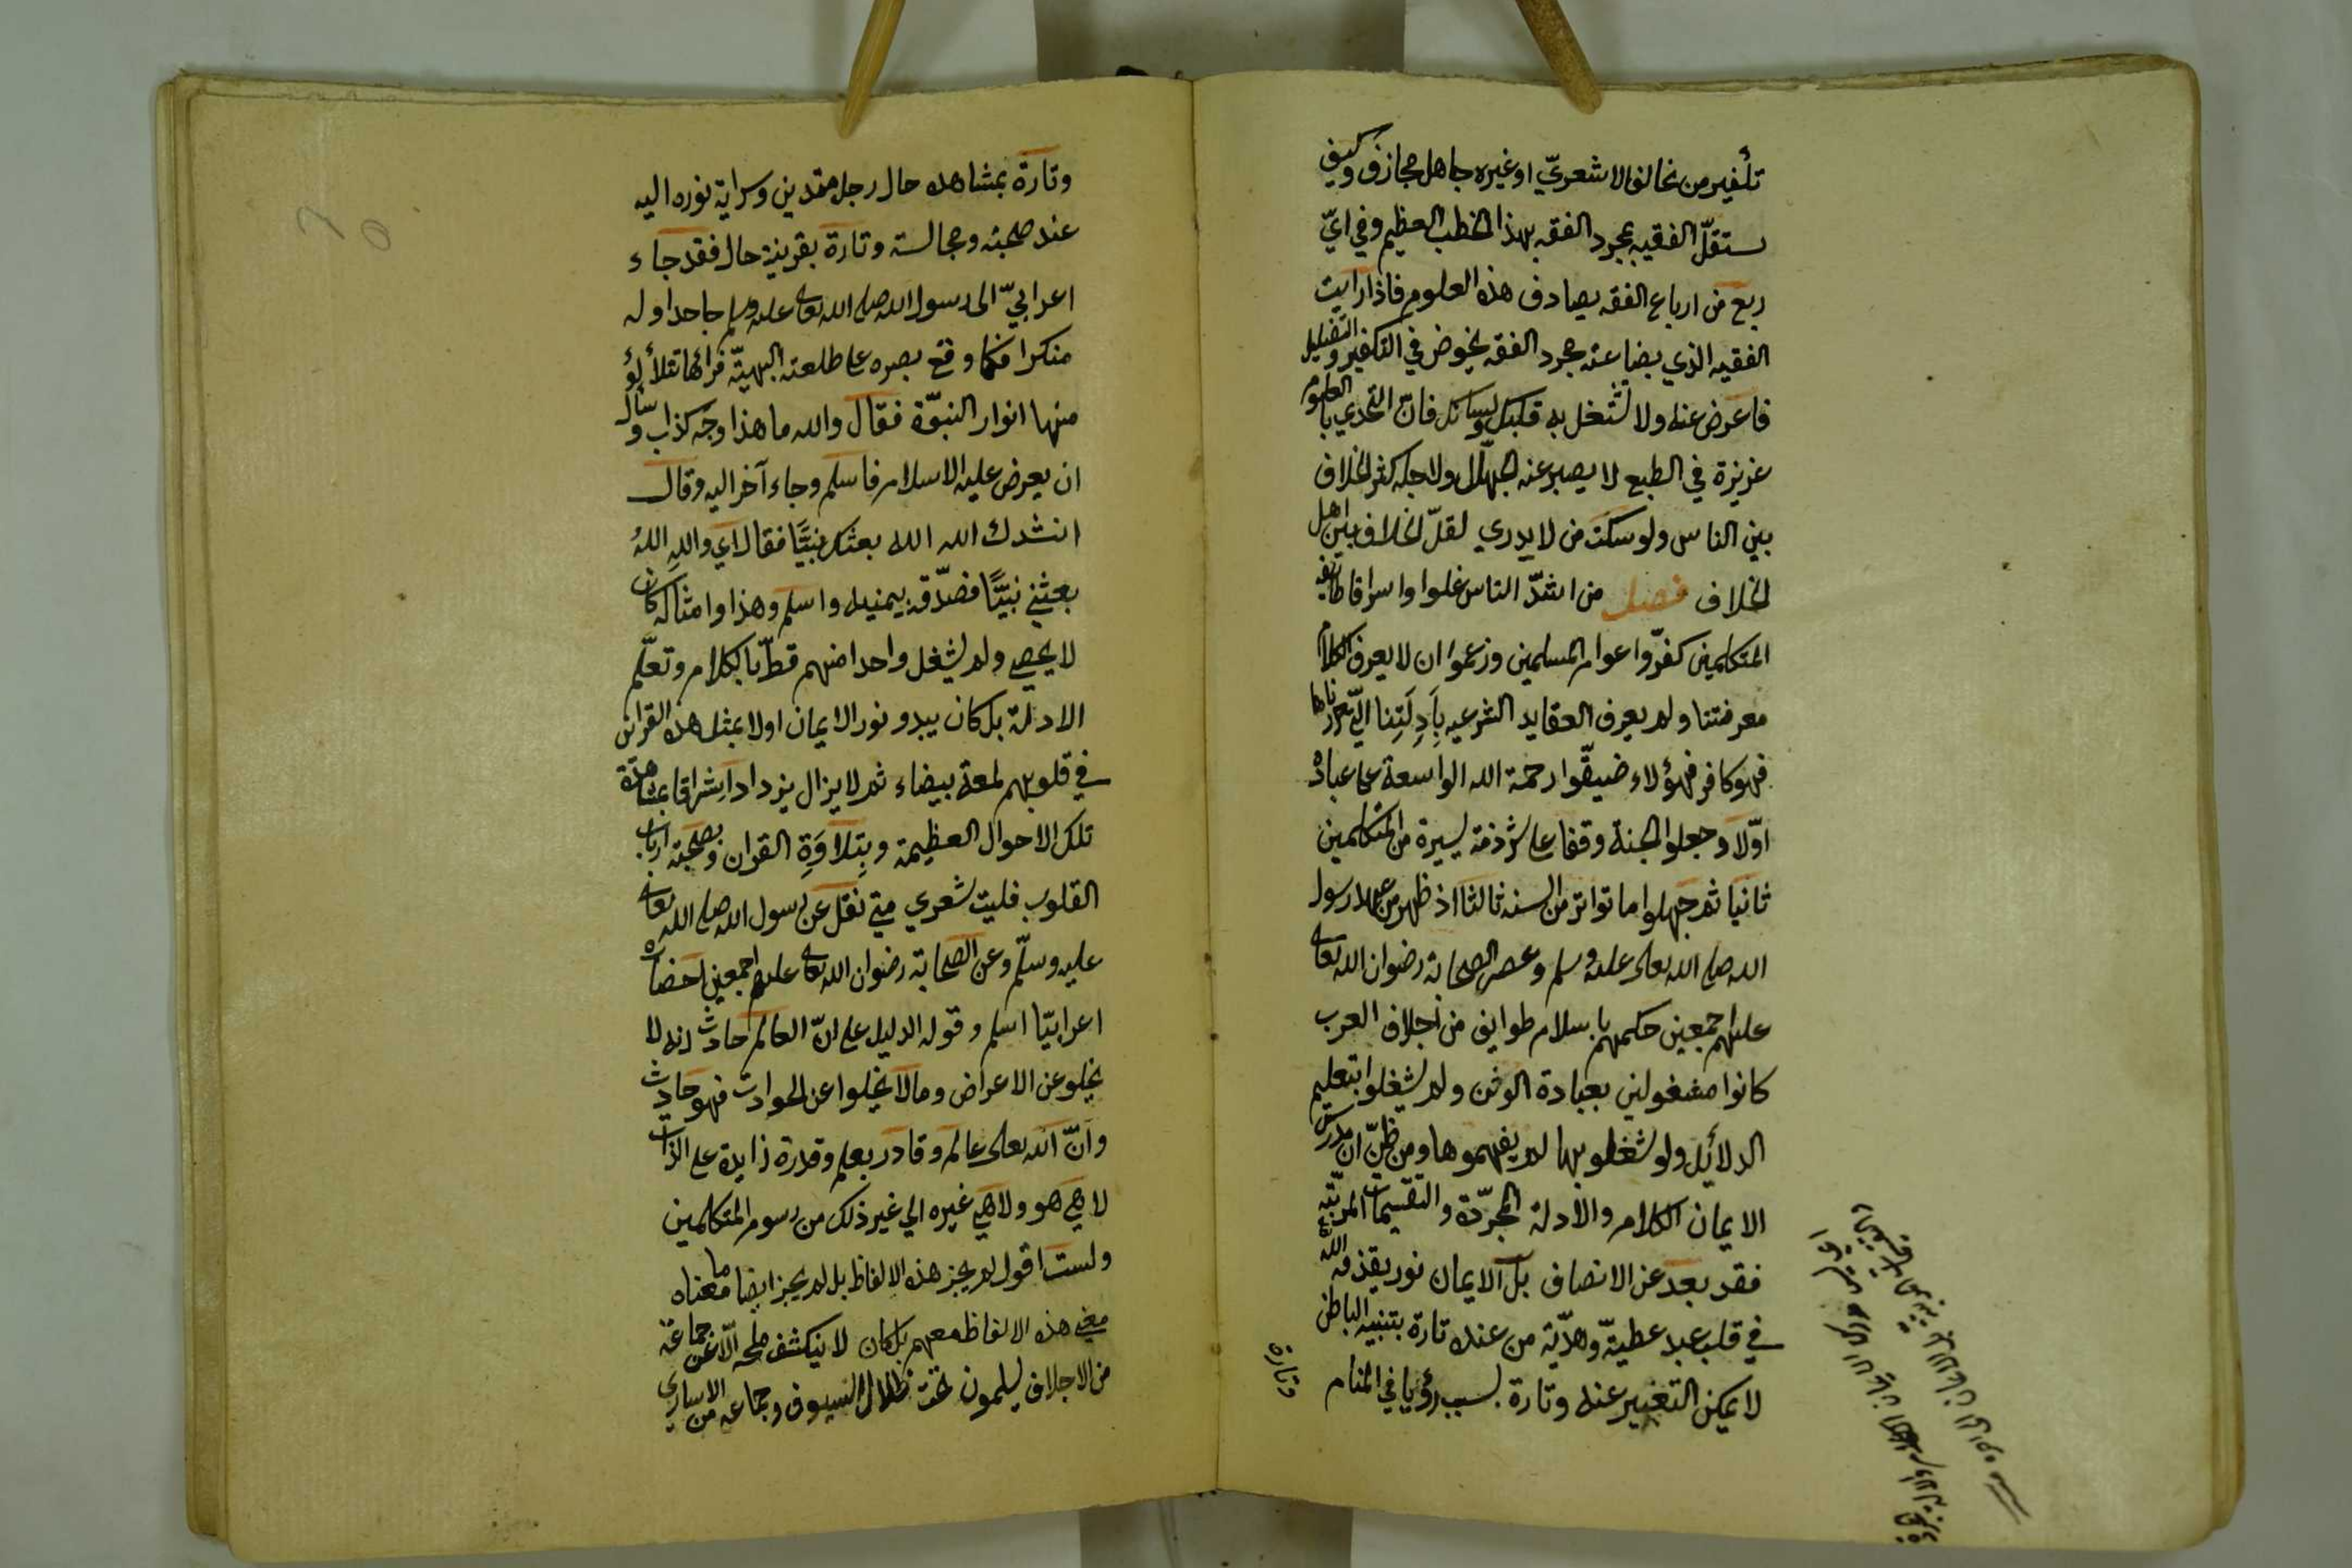 تكفير من يخالف الاشعريّ او غيره جاهل مجازف وكيف
ستقلّ الفقيه بمجرد الفقه بهذا الخطب العظيم وفي ايّ
ربع من ارباع الفقه يصادف هذه العلوم فاذا رايت
الفقيه الذي بضاعته مجرد الفقه يخوض في التكفير والتضليل
فاعرض عنه ولا تشتغل به قلبك ولسانك فان التحدي بالعلوم
غريزة في الطبع لا يصبر عنه الجهّال ولاجله كثر الخلاف
بين الناس ولو سكت من لا يدري لقلّ الخلاف بين اهل
الخلاف فصل من اشدّ الناس غلوا واسرافا طائفه
المتكلمين كفّروا عوام المسلمين وزعموا ان لا يعرف الكلام
معرفتنا ولم يعرف العقايد الشرعيه بِاَدِلَتِنا الّتي حررناها
فهو كافر فهؤلاء ضيقّوا رحمة الله الواسعة على عباده
اوّلا وجعلوا الجنة وقفا على شرذمة يسيرة من المتكلمين
ثانيا ثم جهلوا ما تواتر من السنه ثالثا اذ ظهر من عهد رسول
الله صلى الله تعالى عليه وسلم وعصر الصحابة رضوان الله تعالى
عليهم اجمعين حكمهم باسلام طوايف من اجلاف العرب
كانوا مشغولين بعبادة الوثن ولم يشغلوا بتعليم
الدلائل ولو شغلوا بها لم يفهموها ومن ظنّ ان مدرك
الايمان الكلام والادلة المجرّدة والتقسيمات المرتبّه
فقد بعد عن الانصاف بل الايمان نور يقذفه الله
في قلب عبد عطيّة وهدّية من عنده تارة بتنبيه الباطن
لا يمكن التعبير عنه وتارة بسبب رؤيا في المنام
وتارة
وتارة بمشاهده حال رجل متدين وسراية نوره اليه
عند صحبته ومجالسته وتارة بقرينة حال فقد جاء
اعرابيّ الى رسول الله صلى الله تعالى عليه وسلم جاحدا وله
منكرا فلما وقع بصره على طلعته البهيّة فراٰها تتلألؤ
منها انوار النبوّة فقال والله ما هذا وجه كذاب وسأل
ان يعرض عليه الاسلام فاسلم وجاء آخر اليه وقال
انشدك الله الله بعثك نبيًّا فقال اي واللهِ اللهُ
بعثني نبيًّا فصدّقه بيمنيه واسلم وهذا وامثاله كان
لا يحصي ولم يشغل واحدا منهم قطّ بالكلام وتعلّم
الادلة بل كان يبدو نور الايمان اولا بمثل هذه القرائن
في قلوبهم لمعة بيضاء ثم لا يزال يزداد اشراقا بمشاهدة
تلك الاحوال العظيمة وبِتِلاوَةِ القران وبصحبة ارباب
القلوب فليت شعري متي نقل عن رسول الله صلى الله تعالى
عليه وسلّم وعن الصحابة رضوان الله تعالى عليهم اجمعين احضاره
اعرابيّا اسلم وقوله الدليل على انّ العالم حادث انه لا
يخلو عن الاعراض وما لا يخلوا عن الحوادث فهو حادث
وانّ الله تعالى عالم وقادر بعلم وقدرة زايدة على الذات
لا هي هو ولا هي غيره الي غير ذلك من رسوم المتكلمين
ولست اقول لم يجز هذه الالفاظ بل لم يجز ايضا ما معناه
معني هذه الالفاظ معهم بل كان لا ينكشف ملحمه الّا عن جماعة
من الاجلاف يسلمون تحت ظلال السيوف وجماعه من الاساري